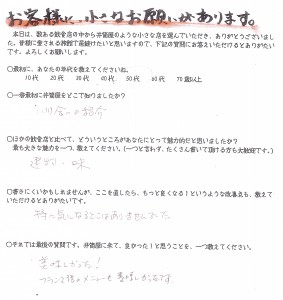 お客様に、小さなお願いがあります。
本日は、数ある飲食店の中から弁慶屋のような小さな店を選んでいただき、ありがとうございました。皆様に愛される
下記の質問にお答えいただけるとありがたいです。よろしくお願いします。
○最初に、あなたの年代を教えてくださいね。
10代 20代 30代 40代 50代 60代 70歳以上
○一番最初に弁慶屋をどこで知りましたか？
の紹介
○ほかの飲食店と比べて、どういうところがあなたにとって魅力的だと思いましたか？
最も大きな魅力を一つ、教えてください。（一つと言わず、たくさん書いて頂ける方も大歓迎です。）
建物・味
○書きにくいかもしれませんが、ここを直したら、もっと良くなる！というような改善点も、教えていただけるとありがたいです。
特に気になるところはありませんでした
○それでは最後の質問です。弁慶屋に来て、良かった！と思うことを、一つ教えてください。
美味しかった！
メニューも美味しかったです